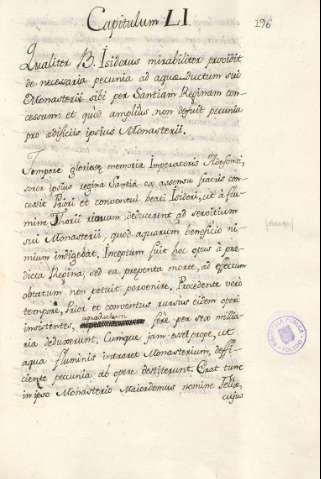 Capitulum LI.
196
Qualiter B. Isidorus mirabiliter providit
de necessaria pecunia ad aquæ Ductum sui
Monasterii sibi per Santiam Reginam con-
cessum: et quod amplius non defuit pecunia
pro edificio ipsius Monasterii.
Tempore gloriosæ memoriæ Imperatoris Ildefonsi,
soror ipsius regina Santia ex assensu fratris con-
cessit Priori et conventui beati Isidori, ut à flu-
mine Thorii rivum deducerent ad servitium
sui Monasterii, quod aquarum beneficio ni-
mium indigebat. Inceptum fuit hoc opus à pre-
dicta Regina, sed ea preventa morte, ad effectum
obtatum non potuit pervenire. Procedente vero
tempore, Prior et conventus rursus eidem operi
insistentes, aquæductum fere per sex millia-
ria deduxerunt. Cumque jam esset prope, ut
aqua fluminis intraret Monasterium, deffi-
ciente pecunia ab opere destiterunt. Erat tunc
in ipso Monasterio Maiordomus nomine Felix,
cujus